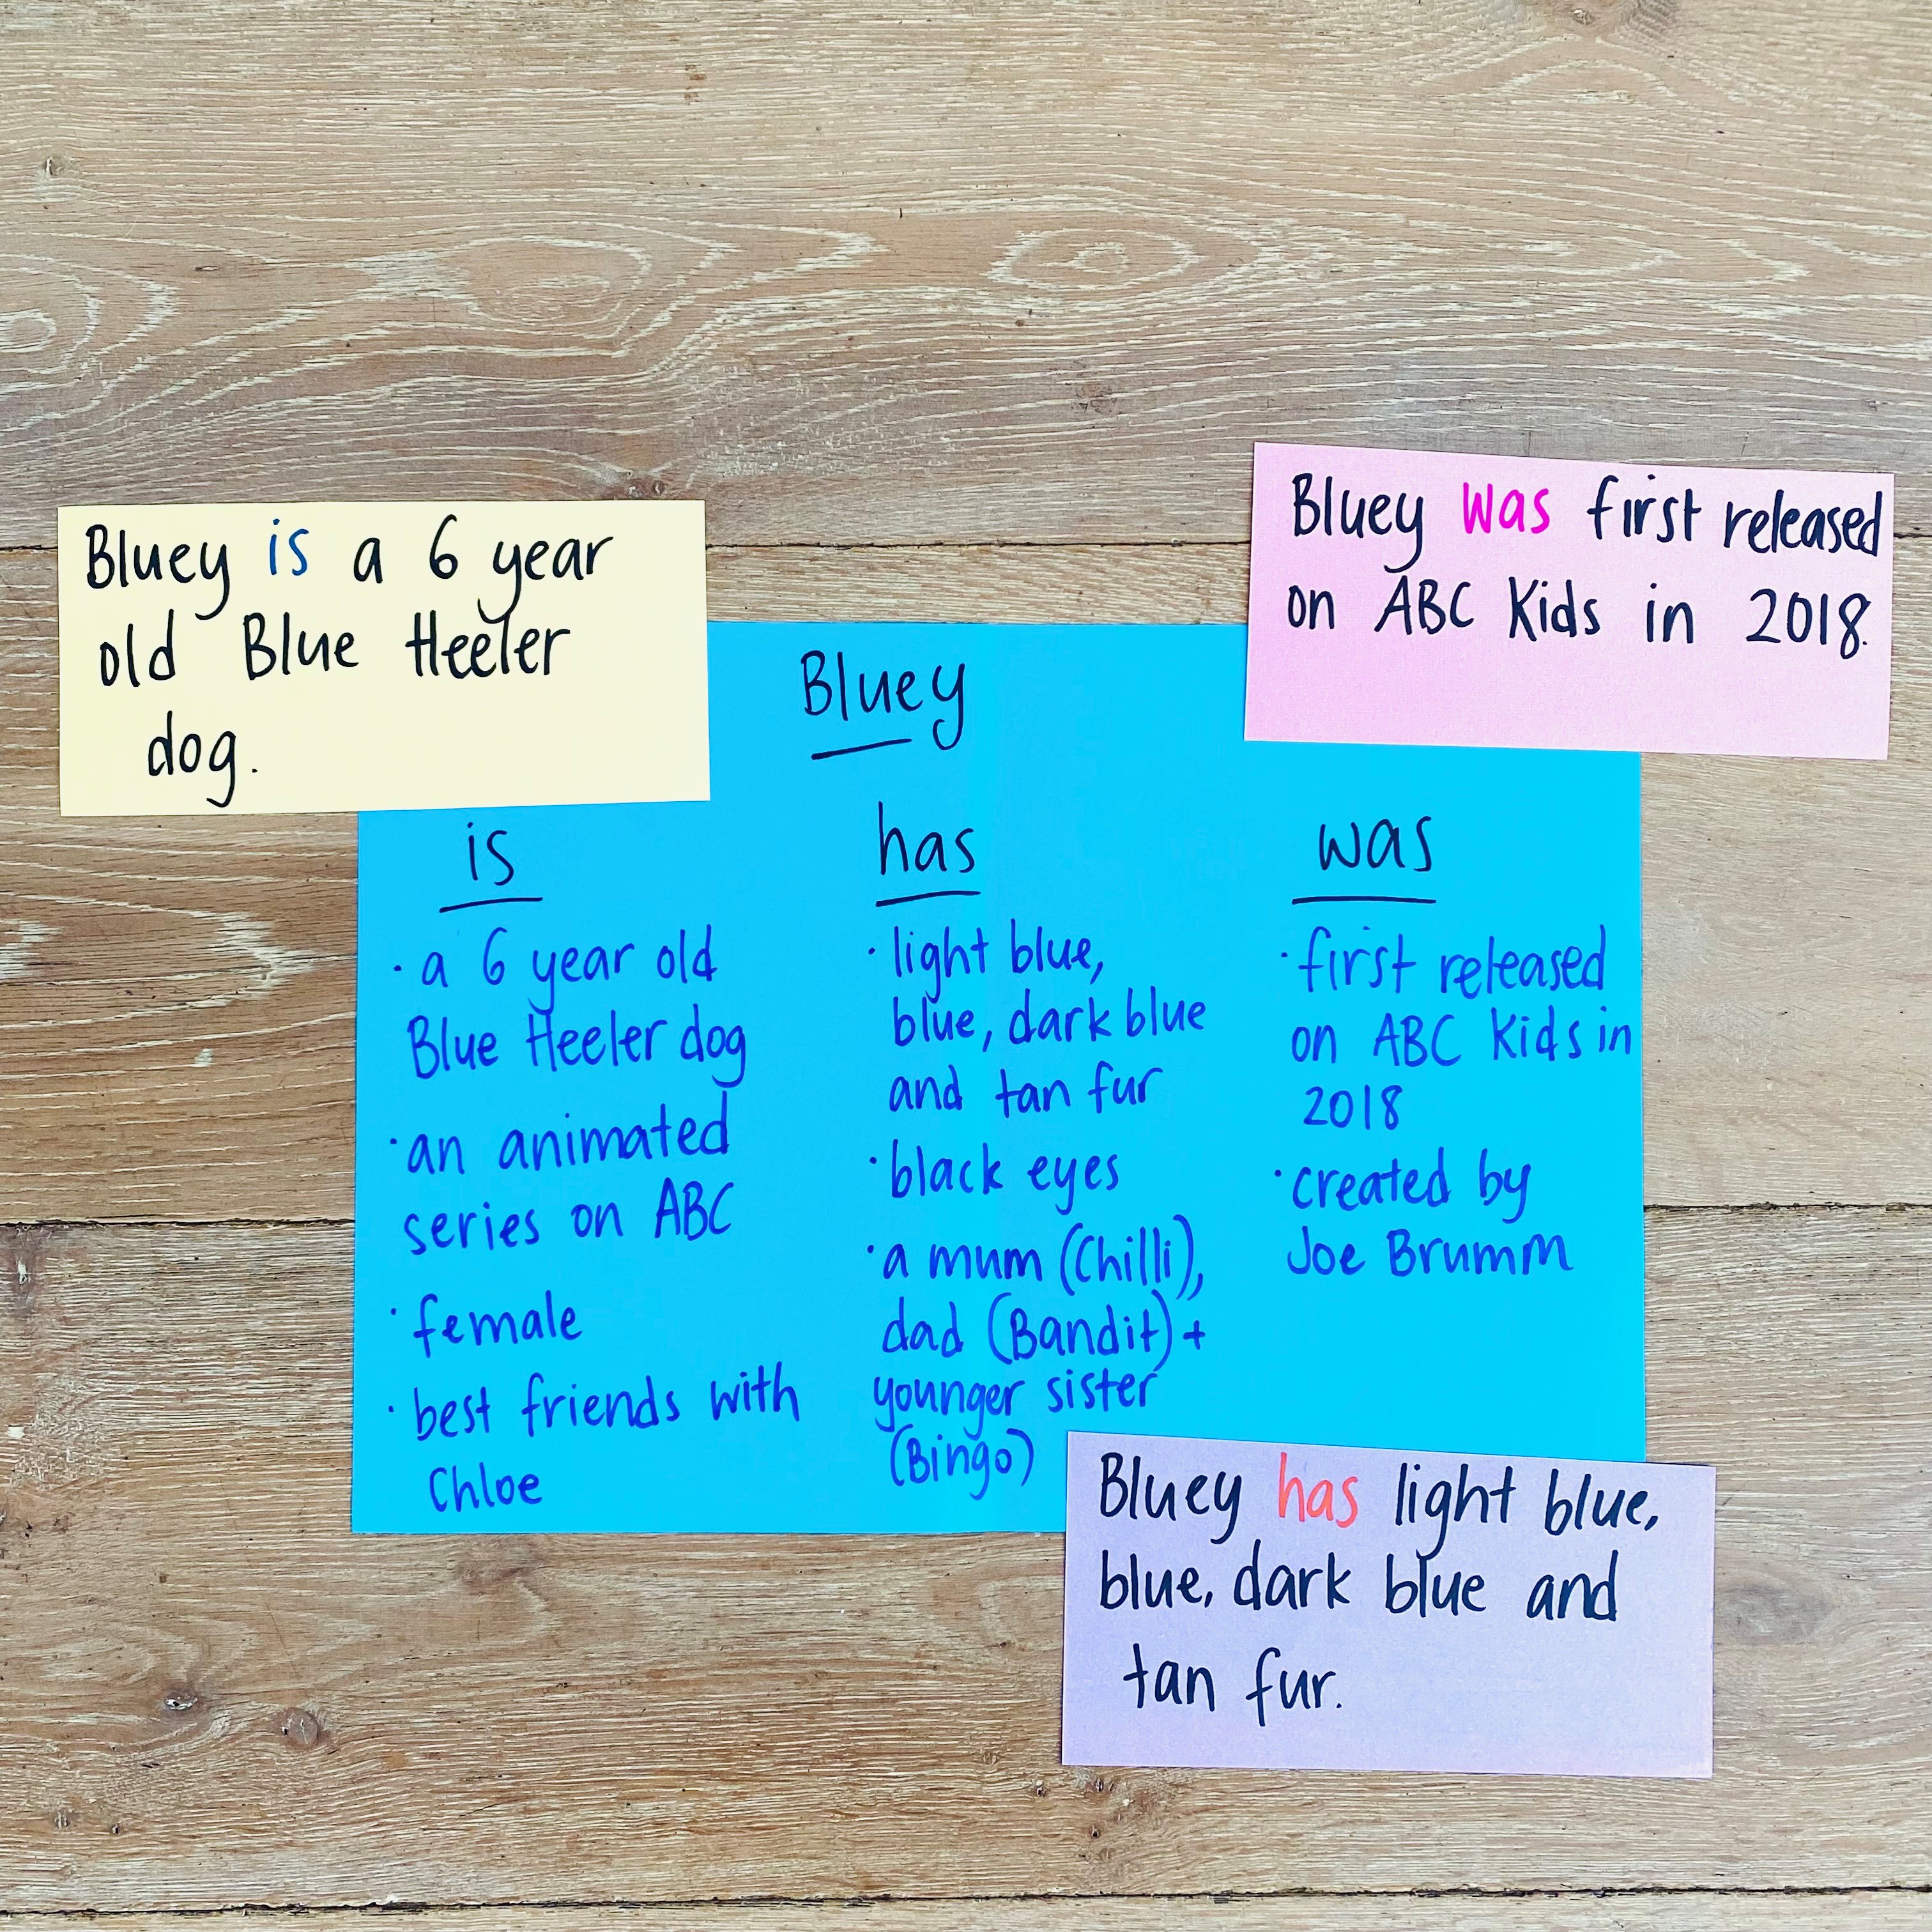 Bluey is a 6 year
old Blue Heeler
dog.
Bluey was first released
on ABC Kids in 2018.
Bluey
is
· a 6 year old
Blue Heeler dog
· an animated
series on ABC
· female
· best friends with
Chloe
has
· light blue,
blue, dark blue
and tan fur
· black eyes
· a mum (Chilli),
dad (Bandit) +
younger sister
(Bingo)
was
· first released
on ABC Kids in
2018
· created by
Joe Brumm
Bluey has light blue,
blue, dark blue and
tan fur.